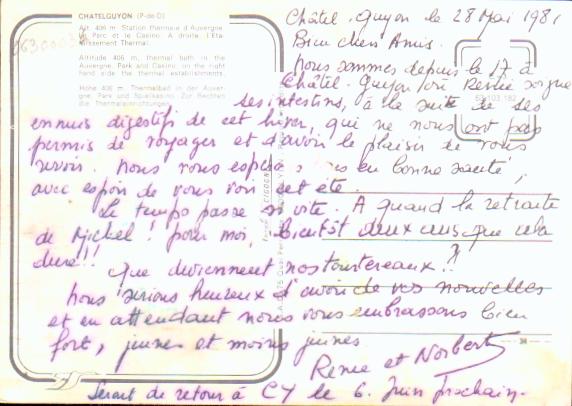 CHATELGUYON (P-de-D)
Alt. 406 m. Station thermale d'Auvergne
Parc et le Casino. A droite, l'Eta-
blissement Thermal.
Altitude 406 m, thermal bath in the
Auvergne. Park and Casino, on the right
hand side the thermal establishments.
Höhe 406 m. Thermalbad in der Auver-
gne. Park und Spielkasino. Zur Rechten
die Thermaleinrichtungen.
Châtel-Guyon le 28 Mai 1981
Bien chers Amis.
Nous sommes depuis le 17 à
Châtel-Guyon où Renée soigne
ses intestins, à la suite de ses
ennuis digestifs de cet hiver, qui ne nous ont pas
permis de voyager et d'avoir le plaisir de vous
revoir. Nous vous espérons en bonne santé,
avec espoir de vous voir cet été.
Le temps passe si vite. A quand la retraite
de Michel! pour moi, bientôt deux ans que cela
dure!!
Que deviennent nos tourtereaux?
Nous serions heureux d'avoir de vos nouvelles
et en attendant nous vous embrassons bien
fort, jeunes et moins jeunes
Renée et Norbert
Serons de retour à CY le 6 Juin prochain.